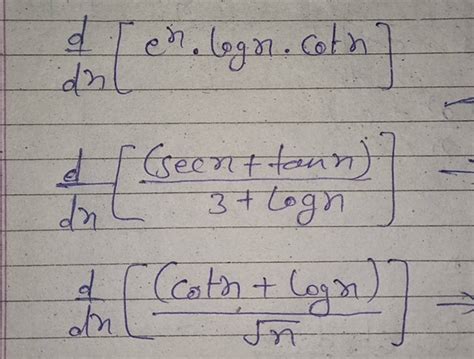 d/dx [ eˣ . logx . cotx ]
d/dx [ (secx + tanx) / 3 + logx ] →
d/dx [ (cotx + logx) / √x ] →